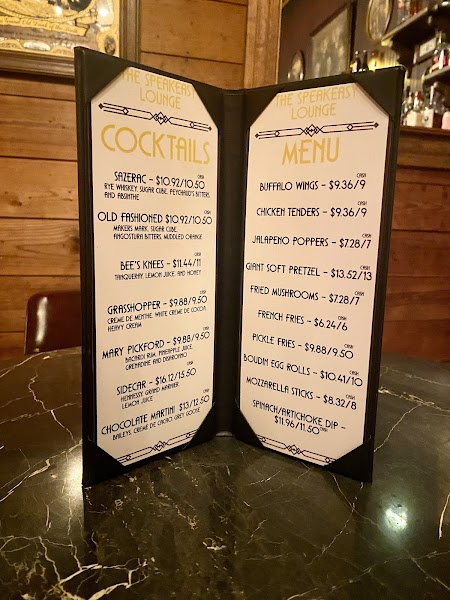 THE SPEAKEASY
LOUNGE
COCKTAILS
CASH
SAZERAC - $10.92/10.50
RYE WHISKEY, SUGAR CUBE, PEYCHAUD'S BITTERS,
AND ABSINTHE
CASH
OLD FASHIONED $10.92/10.50
MAKERS MARK, SUGAR CUBE,
ANGOSTURA BITTERS, MUDDLED ORANGE
CASH
BEE'S KNEES - $11.44/11
TANQUERAY, LEMON JUICE, AND HONEY
CASH
GRASSHOPPER - $9.88/9.50
CREME DE MENTHE, WHITE CREME DE COCOA,
HEAVY CREAM
CASH
MARY PICKFORD - $9.88/9.50
BACARDI RUM, PINEAPPLE JUICE,
GRENADINE AND DISARONNO
CASH
SIDECAR - $16.12/15.50
HENNESSY, GRAND MARNIER,
LEMON JUICE,
CASH
CHOCOLATE MARTINI $13/12.50
BAILEYS, CREME DE CACAO, GREY GOOSE
THE SPEAKEASY
LOUNGE
MENU
CASH
BUFFALO WINGS - $9.36/9
CASH
CHICKEN TENDERS - $9.36/9
CASH
JALAPENO POPPERS - $7.28/7
CASH
GIANT SOFT PRETZEL - $13.52/13
CASH
FRIED MUSHROOMS - $7.28/7
CASH
FRENCH FRIES - $6.24/6
CASH
PICKLE FRIES - $9.88/9.50
CASH
BOUDIN EGG ROLLS - $10.41/10
CASH
MOZZARELLA STICKS - $8.32/8
SPINACH/ARTICHOKE DIP -
$11.96/11.50 CASH